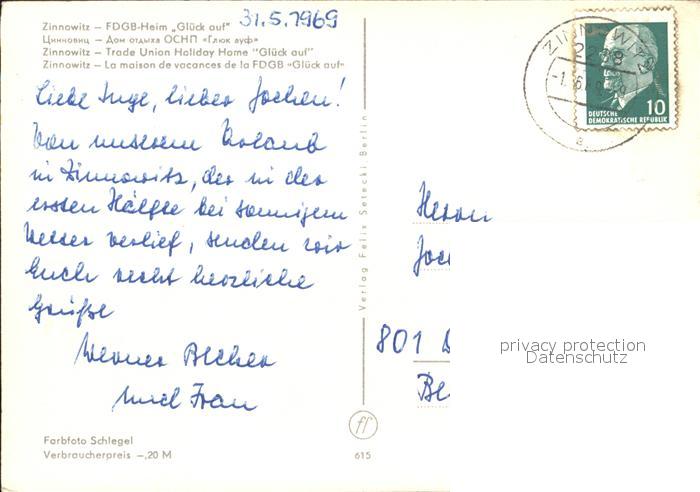 31.5.1969
Zinnowitz – FDGB-Heim „Glück auf"
Цинновиц – Дом отдыха ОСНП «Глюк ауф»
Zinnowitz – Trade Union Holiday Home "Glück auf"
Zinnowitz – La maison de vacances de la FDGB «Glück auf»
Liebe Inge, lieber Jochen!
Von unserem Urlaub
in Zinnowitz, der in der
ersten Hälfte bei sonnigem
Wetter verlief, senden wir
Euch recht herzliche
Grüße
Werner Becher
und Frau
Farbfoto Schlegel
Verbraucherpreis –,20 M
Verlag Felix Setecki Berlin
615
ZINNOWITZ
2238
a
10
DEUTSCHE
DEMOKRATISCHE REPUBLIK
Herrn
Joc
801 D
Be
privacy protection
Datenschutz